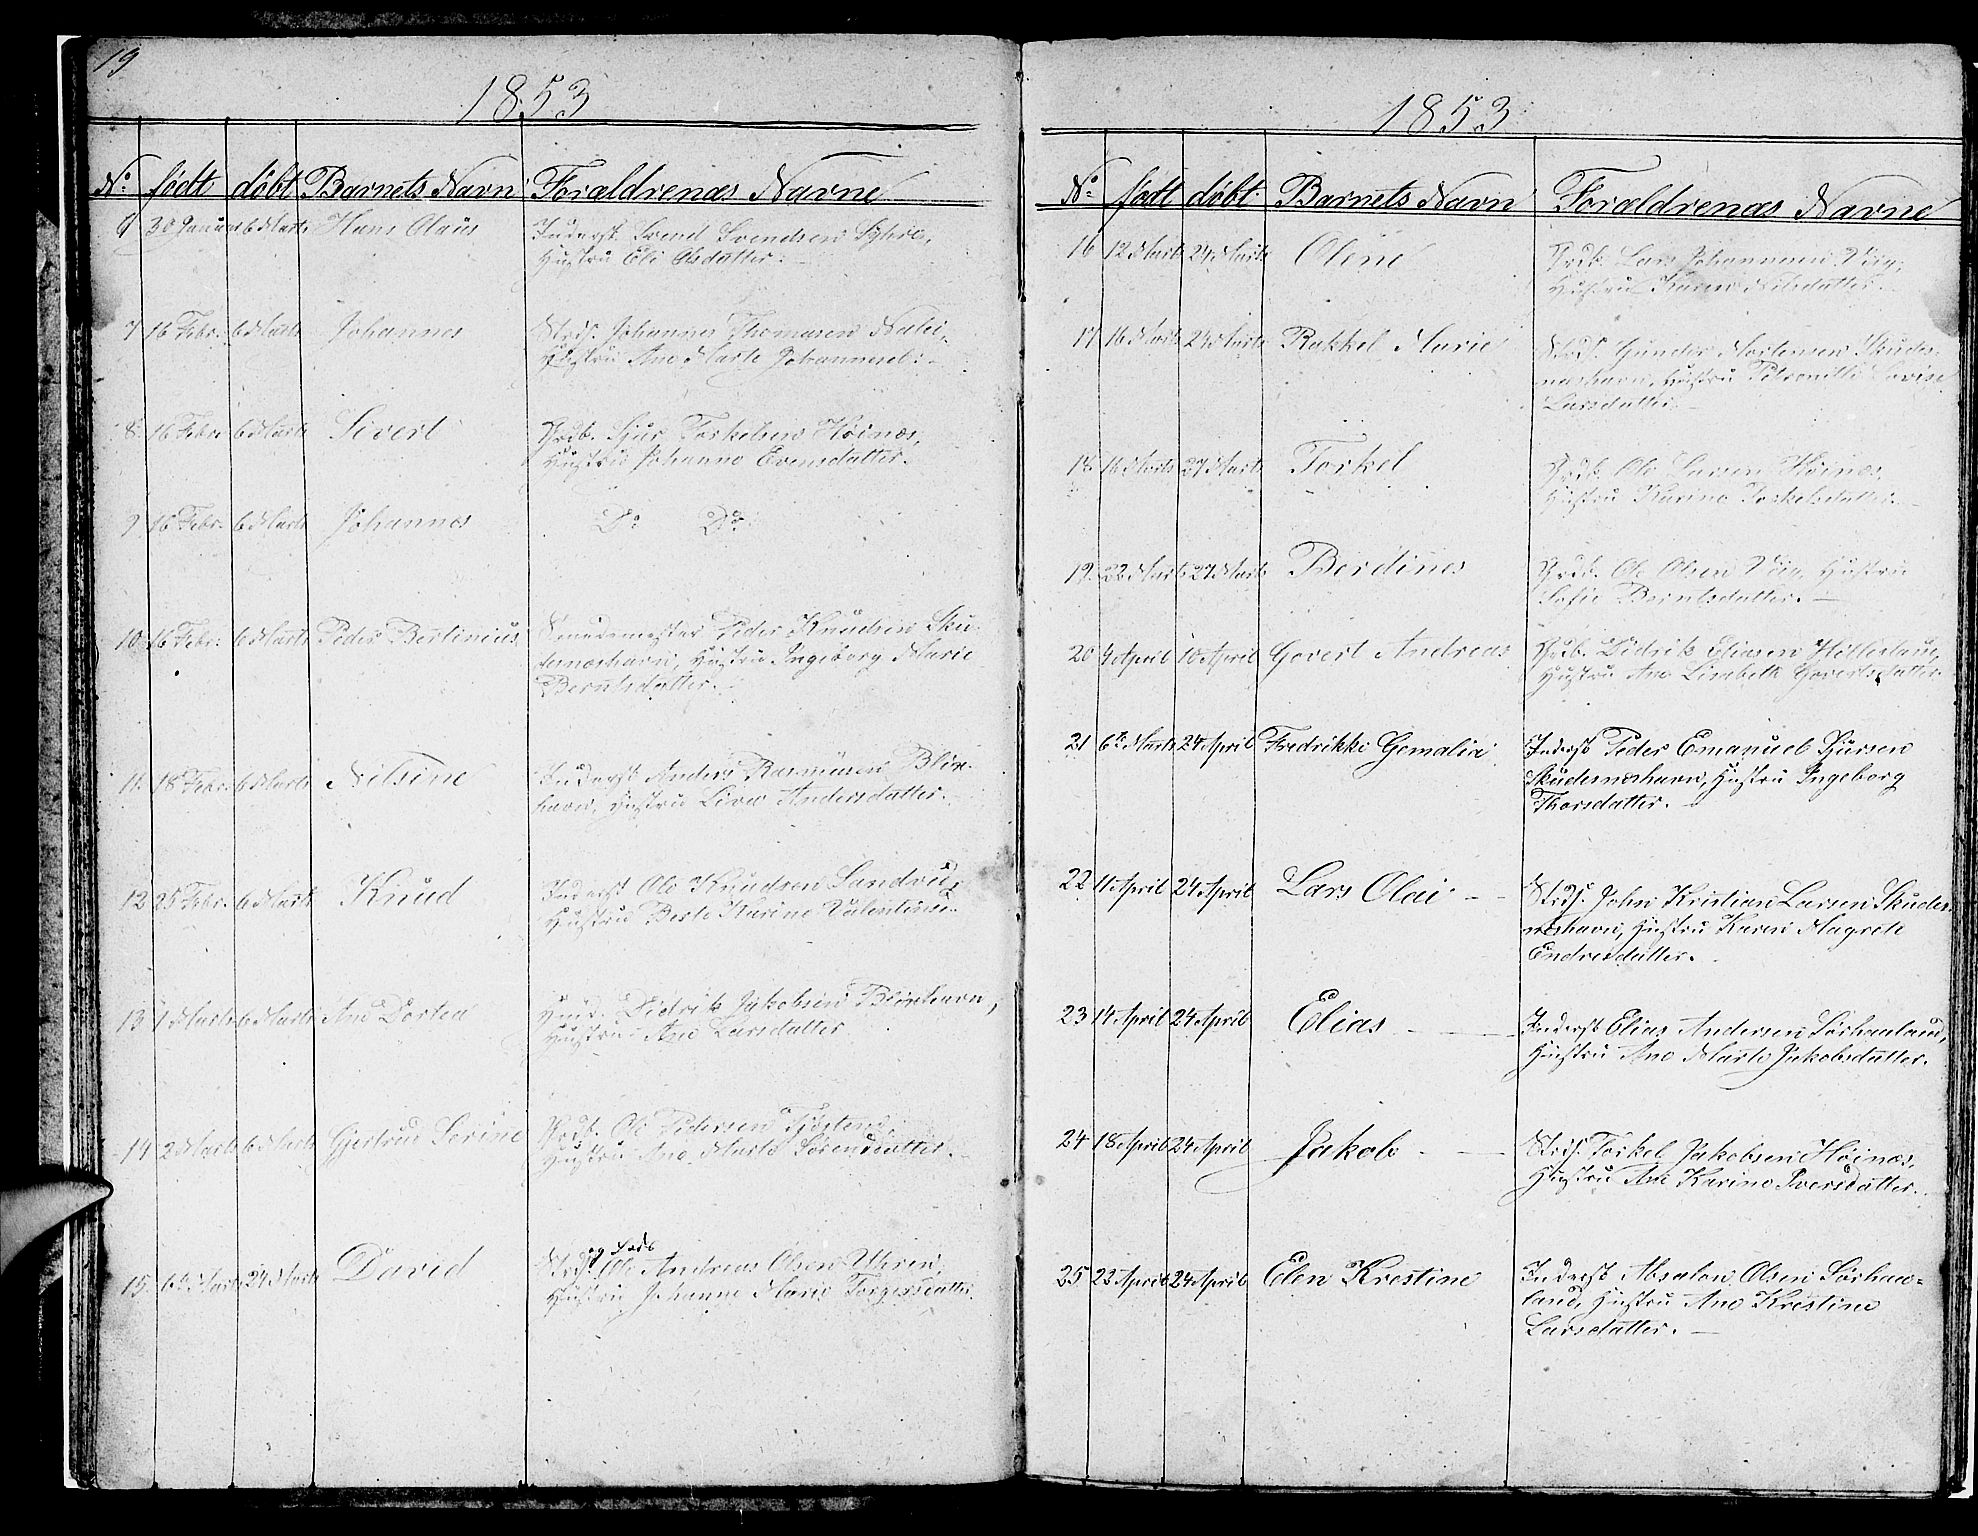 19
1853
No. født døbt Barnets Navn Forældrenæs Navne
6 30 Januar 6 Marts Hans Olaus Inderst. Svend Svendsen Syhre,
Hustru Eli Olsdatter. –
7 16 Febr. 6 Marts Johannes Strds. Johannes Thomasen
Hustru Ane Marte Johannesd: –
8. 16 Febr. 6 Marts Sivert Grdb. Sjur Torkelsen Høinæs,
Hustru Johanne Evensdatter. –
9 16 Febr. 6 Marts Johannes Do Do
10 16 Febr. 6 Marts Peder Bertinius Peder Knudsen Sku-
dernæshavn, Hustru Ingeborg Marie
Berntsdatter. –
11. 18 Febr. 6 Marts Nilsine Inderst Anders Rasmusen
havn, Hustru Live Andersdatter. –
12 25 Febr. 6 Marts Knud Inderst Ole Knudsen Sandvig,
Hustru Berte Karine
13 1 Marts 6 Marts Ane Dortea Didrik Jakobsen
Hustru Ane Larsdatter
14 2 Marts 6 Marts Gjertrud Serine Grdb. Ole Pedersen
Hustru Ane Marte Sørensdatter. –
15. 6te Marts 24 Marts David Strds. og Lods Ole Andreas Olsen
Hustru Johanne Marie Torgersdatter.
1853
No. født døbt Barnets Navn Forældrenæs Navne
16 12 Marts 24 Marts Olene Grdb. Lars Johannesen Vig,
Hustru Karen Nilsdatter. –
17 16 Marts 24 Marts Rakkel Marie Strds. Gunder Mortensen Skuder-
næshavn, Hustru Petronille Lovise
Larsdatter. –
18. 16 Marts 27 Marts Torkel Grdb. Ole Larsen Høinæs,
Hustru Karine Torkelsdatter. –
19. 22 Marts 27 Marts Berdines Grdb. Ole Olsen Vig, Hustru
Sofie Berntsdatter. –
20 4 April 10 April Govert Andreas Grdb. Didrik Eliasen
Hustru Ane Lisbeth Govertsdatter.
21 6te Marts 24 April Fredrikke Gemalia Inderst Peder Emanuel
Skudernæshavn, Hustru Ingeborg
Thorsdatter. –
22 11 April 24 April Lars Olai – – Strds. John Kristian Larsen Skuder-
næshavn, Hustru Karen Magrete
Endresdatter. –
23 14 April 24 April Elias – – Inderst Elias Andersen Sørhauland,
Hustru Ane Marte Jakobsdatter.
24 18 April 24 April Jakob – – Strds. Torkel Jakobsen Høinæs,
Hustru Ane Karine Iversdatter. –
25 23 April 24 April Elen Krestine Inderst Absalon Olsen Sørhau-
land, Hustru Ane Krestine
Larsdatter. –